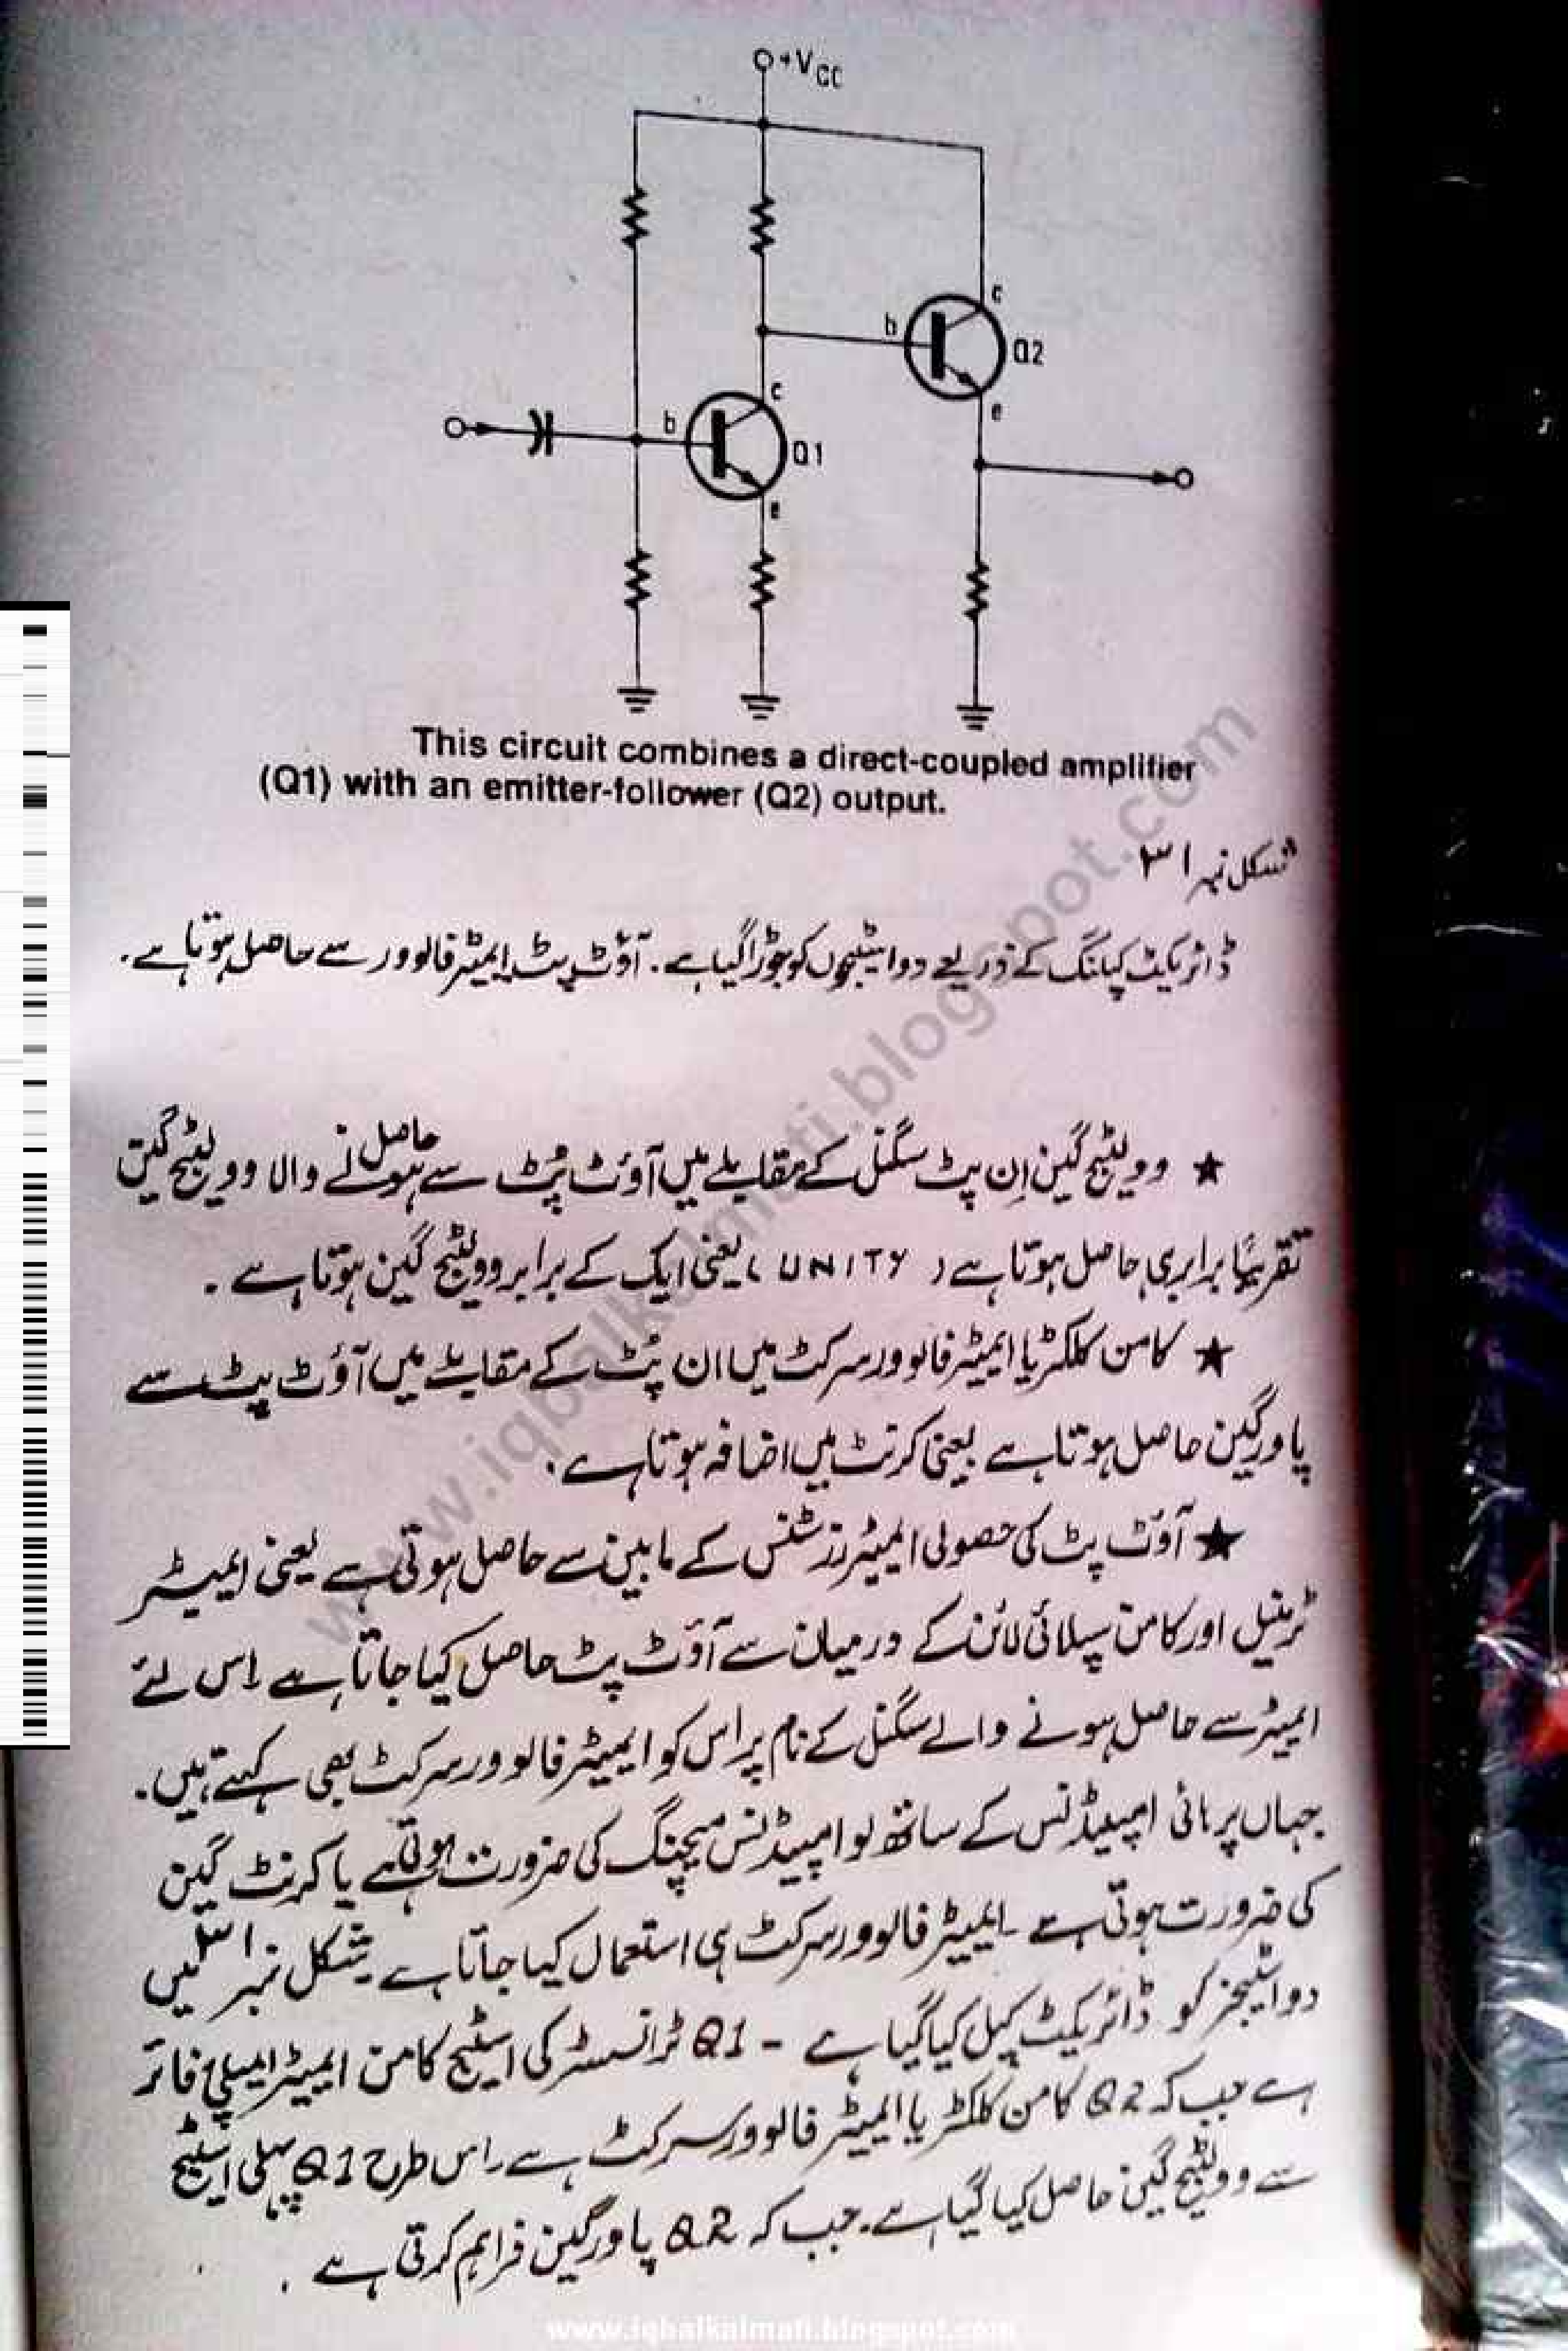 +VCC
c
b
Q2
e
c
b
Q1
e
This circuit combines a direct-coupled amplifier
(Q1) with an emitter-follower (Q2) output.
شکل نمبر ۳۱
ڈائریکٹ کپلنگ کے ذریعے دو اسٹیجوں کو جوڑا گیا ہے۔ آؤٹ پٹ ایمیٹر فالوور سے حاصل ہوتا ہے۔
★ وولٹیج گین اِن پٹ سگنل کے مقابلے میں آؤٹ پُٹ سے حاصل ہونے والا وولٹیج گین
تقریباً برابر ہی حاصل ہوتا ہے (UNITY) یعنی ایک کے برابر وولٹیج گین ہوتا ہے۔
★ کامن کلکٹر یا ایمیٹر فالوور سرکٹ میں ان پُٹ کے مقابلے میں آؤٹ پٹ سے
پاور گین حاصل ہوتا ہے یعنی کرنٹ میں اضافہ ہوتا ہے۔
★ آؤٹ پٹ کی حصولی ایمیٹر رزسٹنس کے مابین سے حاصل ہوتی ہے یعنی ایمیٹر
ٹرمینل اور کامن سپلائی لائن کے درمیان سے آؤٹ پٹ حاصل کیا جاتا ہے اس لئے
ایمیٹر سے حاصل ہونے والے سگنل کے نام پر اس کو ایمیٹر فالوور سرکٹ بھی کہتے ہیں۔
جہاں پر ہائی امپیڈنس کے ساتھ لو امپیڈنس میچنگ کی ضرورت ہوتی ہے یا کرنٹ گین
کی ضرورت ہوتی ہے ۔ ایمیٹر فالوور سرکٹ ہی استعمال کیا جاتا ہے شکل نمبر ۳۱ میں
دو اسٹیجز کو ڈائریکٹ کپل کیا گیا ہے - Q1 ٹرانسسٹر کی اسٹیج کامن ایمیٹر ایمپلی فائر
ہے جب کہ Q2 کامن کلکٹر یا ایمیٹر فالوور سرکٹ ہے۔ اس طرح Q1 پہلی اسٹیج
سے وولٹیج گین حاصل کیا گیا ہے۔ جب کہ Q2 پاور گین فراہم کرتی ہے۔
www.iqbalkalmati.blogspot.com
www.iqbalkalmati.blogspot.com